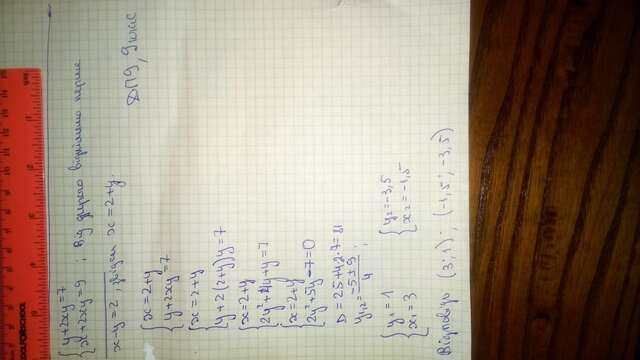 {y+2xy=7
{x+2xy=9 ; Від другого віднімемо перше
x-y=2, звідси x=2+y
ДПА, 9 клас
{x=2+y
{y+2xy=7
{x=2+y
{y+2(2+y)y=7
{x=2+y
{2y²+4y+y=7
{x=2+y
{2y²+5y-7=0
D=25+4·2·7=81
y₁,₂=(-5±9)/4 ;
{y₁=1 {y₂=-3,5
{x₁=3 {x₂=-1,5
Відповідь (3;1); (-1,5; -3,5)